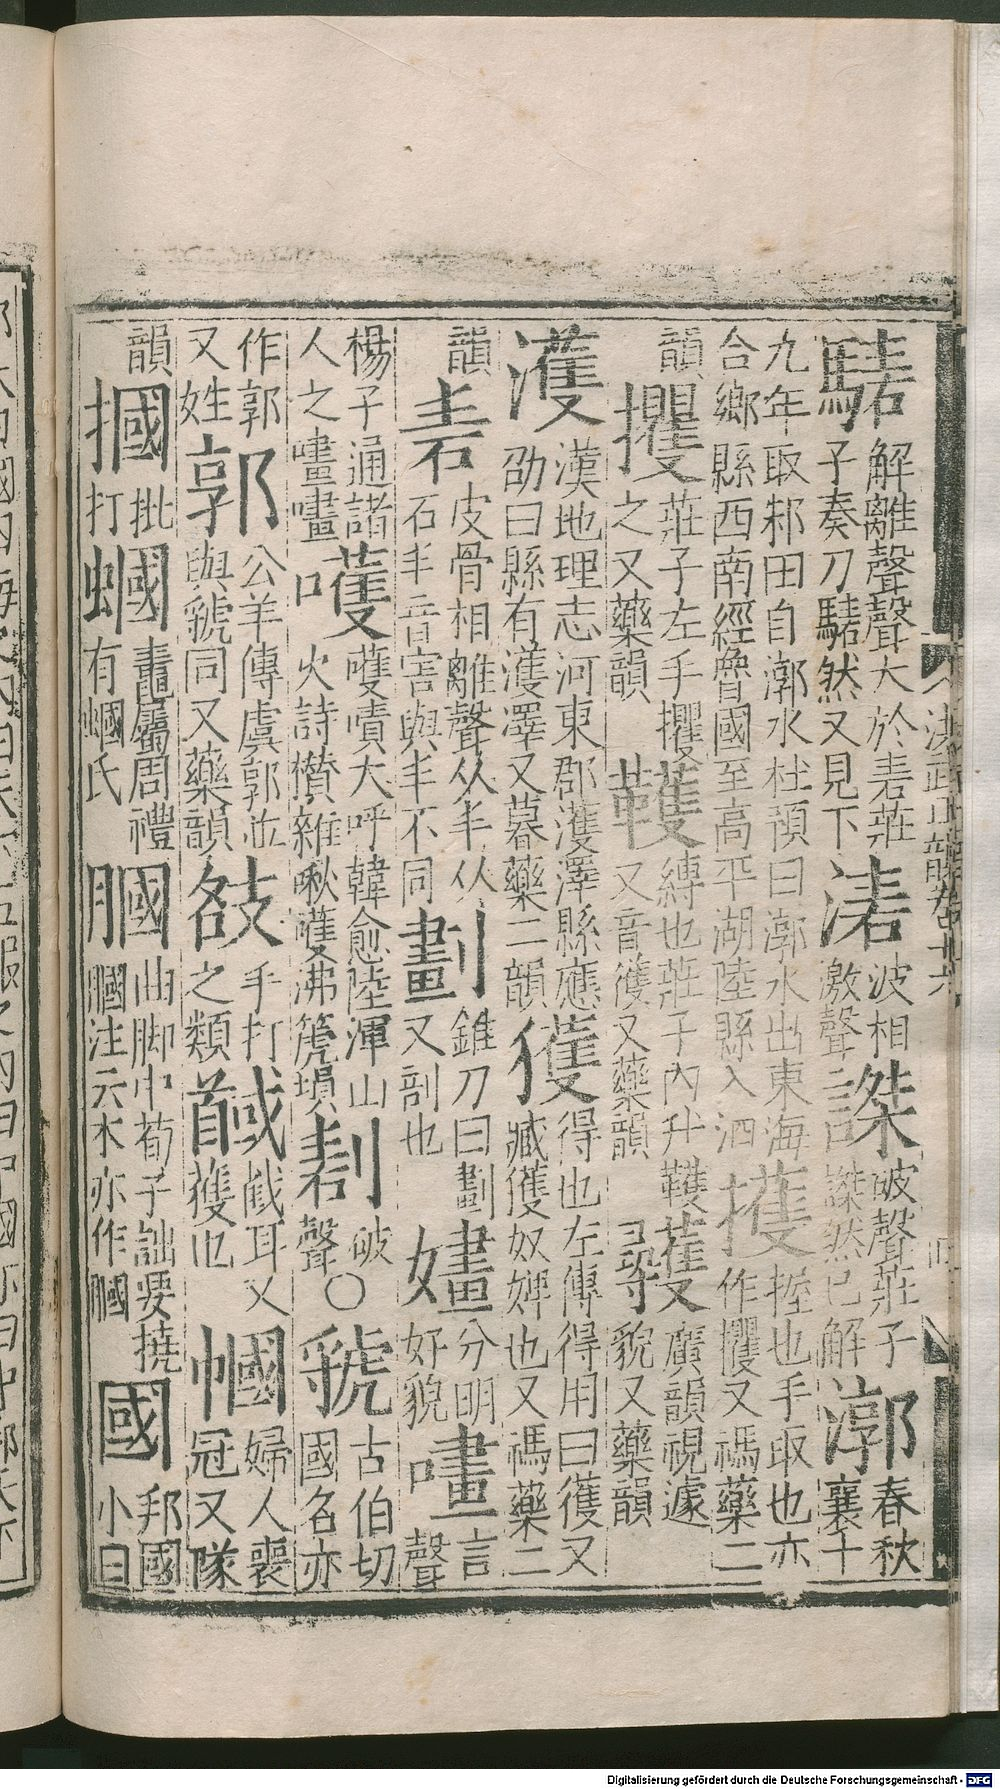 騞解離聲聲大於砉莊子奏刀騞然又見下
湱波相激聲
謋破聲莊子謋然已解
漷春秋襄十九年取邾田自漷水杜預曰漷水出東海合鄉縣西南經魯國至高平湖陸縣入泗
擭握也手取也亦作攫又禡藥二韻
攫莊子左手攫之又藥韻
韄縛也莊子內韄又音獲又藥韻
矆廣韻視遽貌又藥韻
濩漢地理志河東郡濩澤縣應劭曰縣有濩澤又暮藥二韻
獲得也臧獲奴婢也左傳得用曰獲又禡藥二韻
砉皮骨相離聲从丰从石丰音害與丰不同
劃錐刀曰劃又剖也
嫿分明好貌
嚍言聲
楊子通諸人之嚍嚍
嚄嚄嘖大呼韓愈陸渾山火詩攢雜啾嚄沸篪塤
剨破聲
○虢古伯切國名亦作郭
又姓
郭公羊傳虞郭並與虢同又藥韻
敋手打之類
馘馘耳又獲也
幗婦人喪冠又隊韻
摑批打
蟈鼃屬周禮有蟈氏
膕曲脚中荀子詘要撓膕注云本亦作膕
國邦國小曰
Digitalisierung gefördert durch die Deutsche Forschungsgemeinschaft - DFG